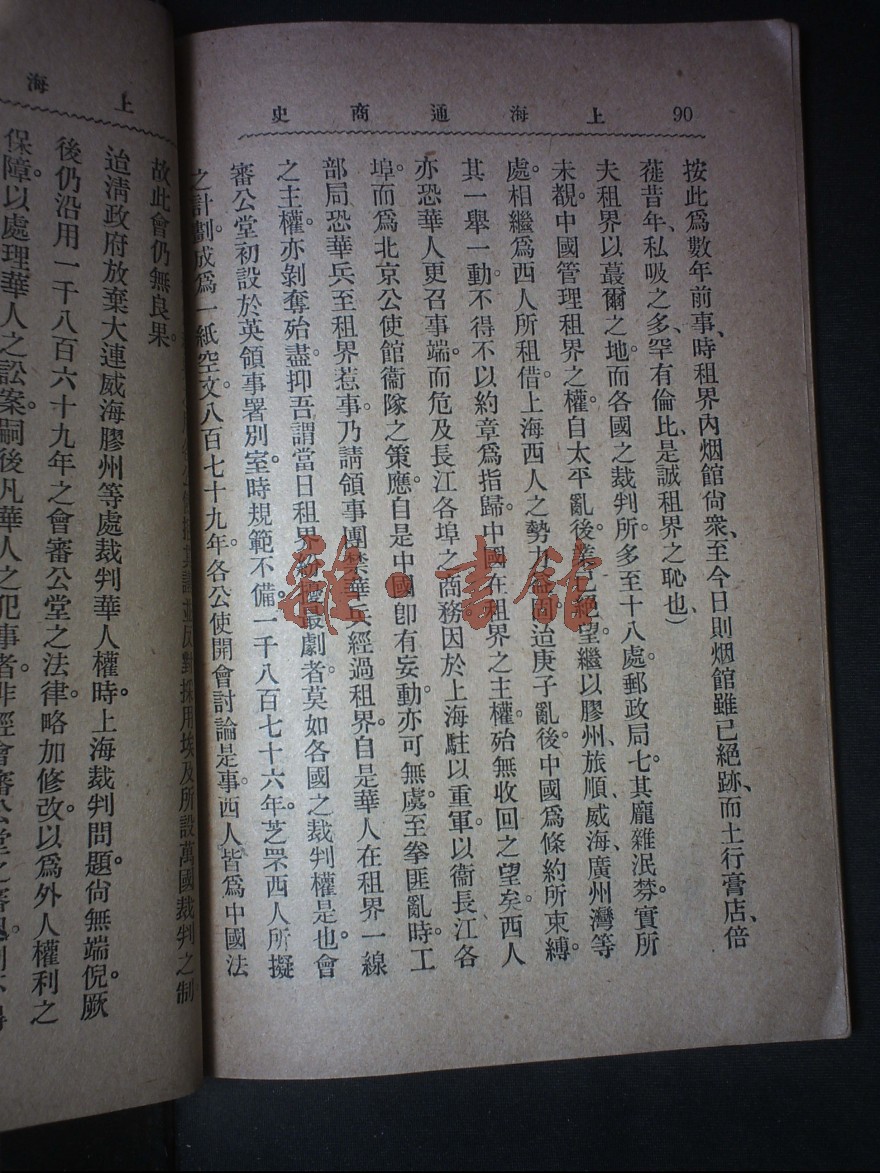 90 上海通商史
按此爲數年前事、時租界內烟館尙衆、至今日則烟館雖已絕跡、而土行膏店、倍
蓰昔年、私吸之多、罕有倫比、是誠租界之恥也）
夫租界以蕞爾之地。而各國之裁判所。多至十八處。郵政局七。其龐雜泯棼。實所
未覩。中國管理租界之權。自太平亂後。業已絕望。繼以膠州、旅順、威海、廣州灣等
處。相繼爲西人所租借。上海西人之勢力益固。迨庚子亂後。中國爲條約所束縛。
其一舉一動。不得不以約章爲指歸。中國在租界之主權。殆無收回之望矣。西人
亦恐華人更召事端。而危及長江各埠之商務。因於上海駐以重軍。以衞長江各
埠。而爲北京公使館衞隊之策應。自是中國卽有妄動。亦可無虞。至拳匪亂時。工
部局恐華兵至租界惹事。乃請領事團禁華兵經過租界。自是華人在租界一線
之主權。亦剝奪殆盡。抑吾謂當日租界紛擾最劇者。莫如各國之裁判權是也。會
審公堂初設於英領事署別室。時規範不備。一千八百七十六年。芝罘西人所擬
之計劃。成爲一紙空文。八百七十九年。各公使開會討論是事。西人皆爲中國法
上海
並反對採用埃及所設萬國裁判之制。
故此會仍無良果。
迨淸政府放棄大連威海膠州等處裁判華人權時。上海裁判問題。尙無端倪。厥
後仍沿用一千八百六十九年之會審公堂之法律。略加修改。以爲外人權利之
保障。以處理華人之訟案。嗣後凡華人之犯事者。非經會審公堂之審